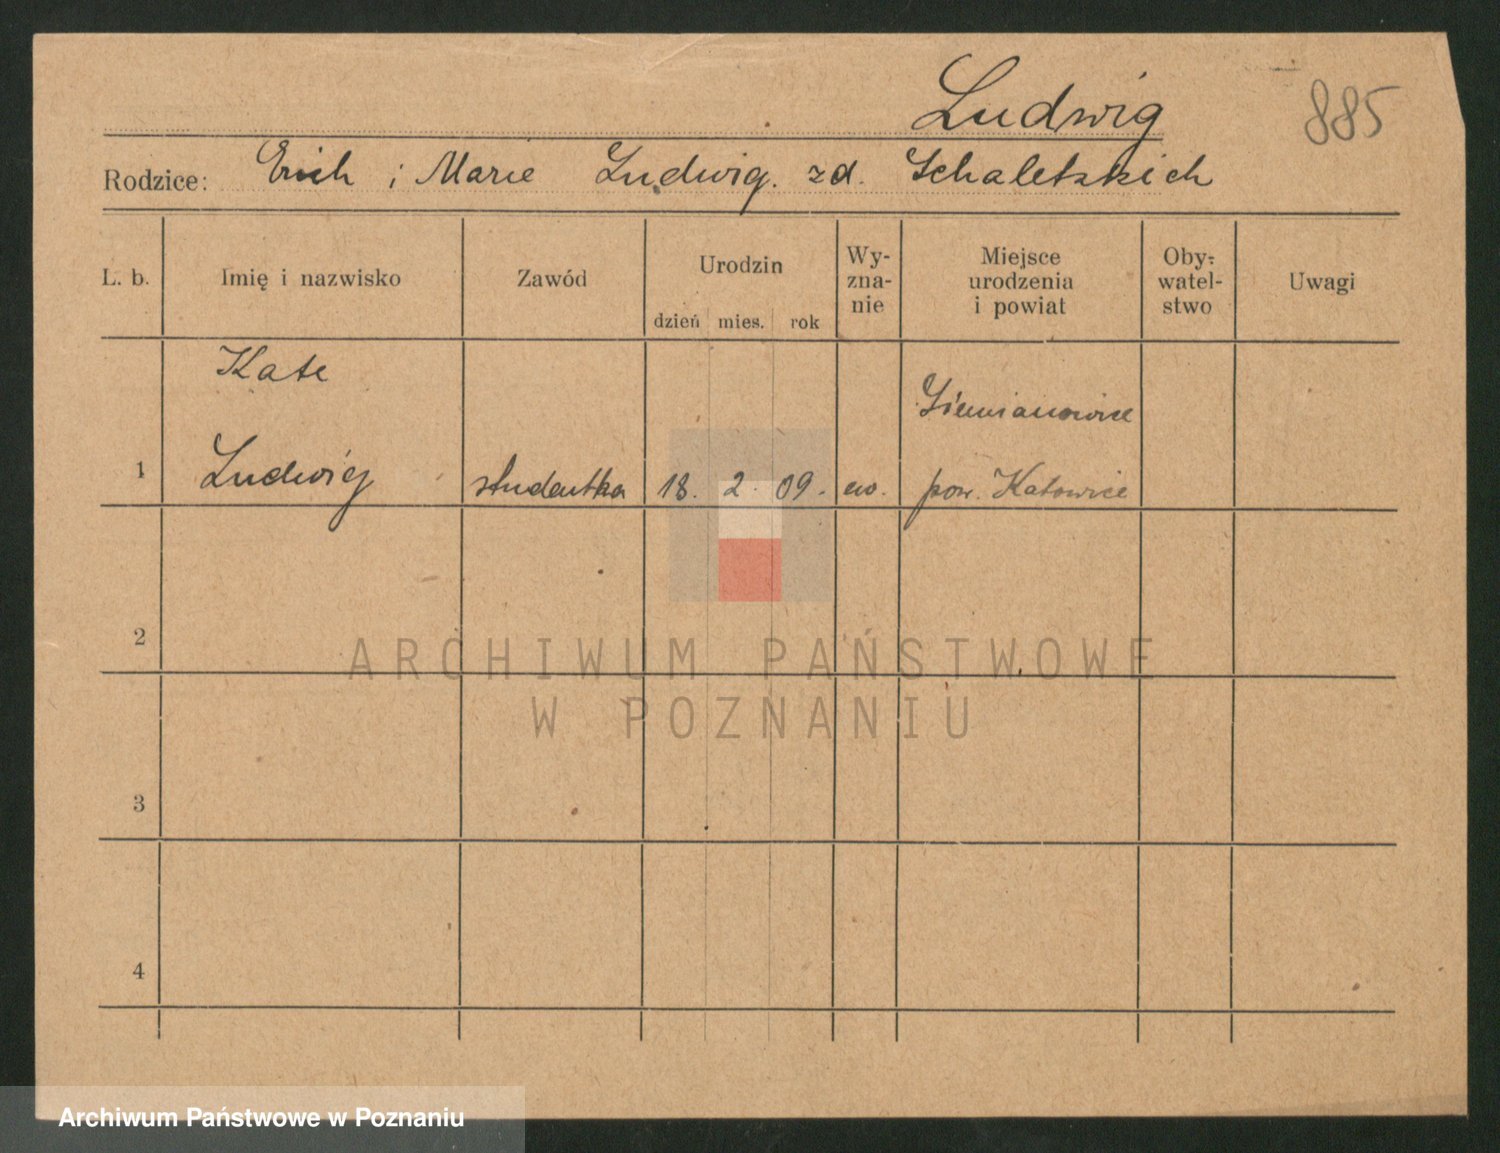 Ludwig
885
Rodzice: Erich i Marie Ludwig. zd. Schaletzkich
L. b.
Imię i nazwisko
Zawód
Urodzin
dzień mies. rok
Wy-
zna-
nie
Miejsce
urodzenia
i powiat
Oby-
watel-
stwo
Uwagi
1
Kate
Ludwig
studentka
18. 2. 09.
ew.
Siemianowice
pow. Katowice
2
3
4
ARCHIWUM PAŃSTWOWE
W POZNANIU
Archiwum Państwowe w Poznaniu